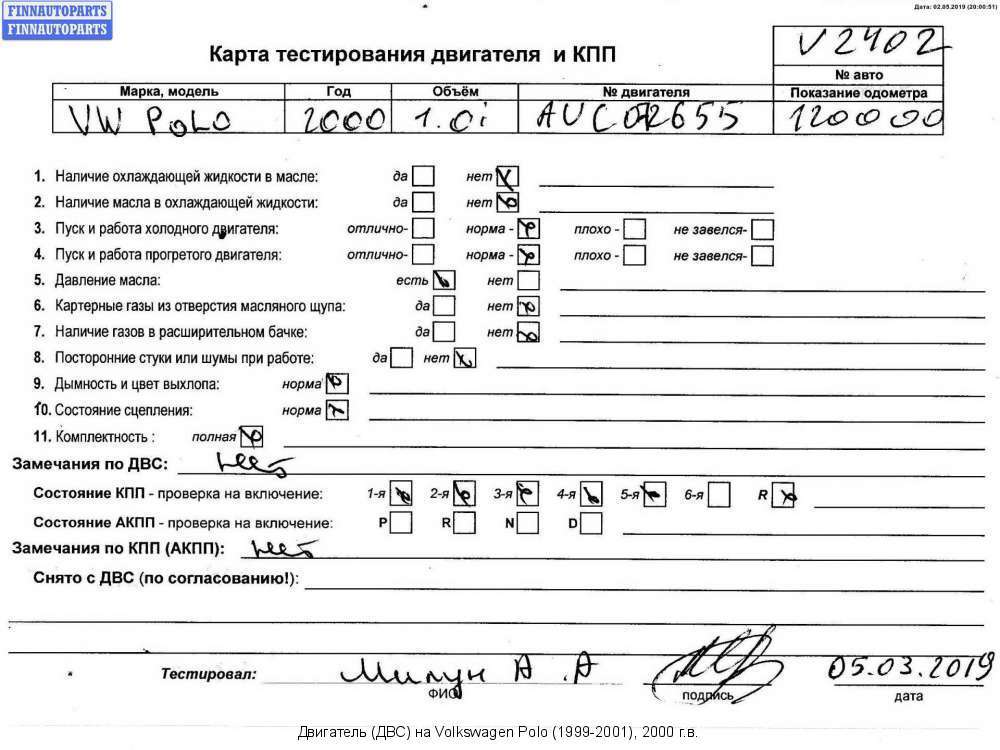 FINNAUTOPARTS
FINNAUTOPARTS
Дата: 02.05.2019 (20:00:51)
Карта тестирования двигателя и КПП
V2402
№ авто
Марка, модель Год Объём № двигателя Показание одометра
VW POLO 2000 1.0i AUC 120000
1. Наличие охлаждающей жидкости в масле: да нет
2. Наличие масла в охлаждающей жидкости: да нет
3. Пуск и работа холодного двигателя: отлично- норма - плохо - не завелся-
4. Пуск и работа прогретого двигателя: отлично- норма - плохо - не завелся-
5. Давление масла: есть нет
6. Картерные газы из отверстия масляного щупа: да нет
7. Наличие газов в расширительном бачке: да нет
8. Посторонние стуки или шумы при работе: да нет
9. Дымность и цвет выхлопа: норма
10. Состояние сцепления: норма
11. Комплектность : полная
Замечания по ДВС: нет
Состояние КПП - проверка на включение: 1-я 2-я 3-я 4-я 5-я 6-я R
Состояние АКПП - проверка на включение: P R N D
Замечания по КПП (АКПП): нет
Снято с ДВС (по согласованию!):
Тестировал: Милун А.А 05.03.2019
ФИО подпись дата
Двигатель (ДВС) на Volkswagen Polo (1999-2001), 2000 г.в.